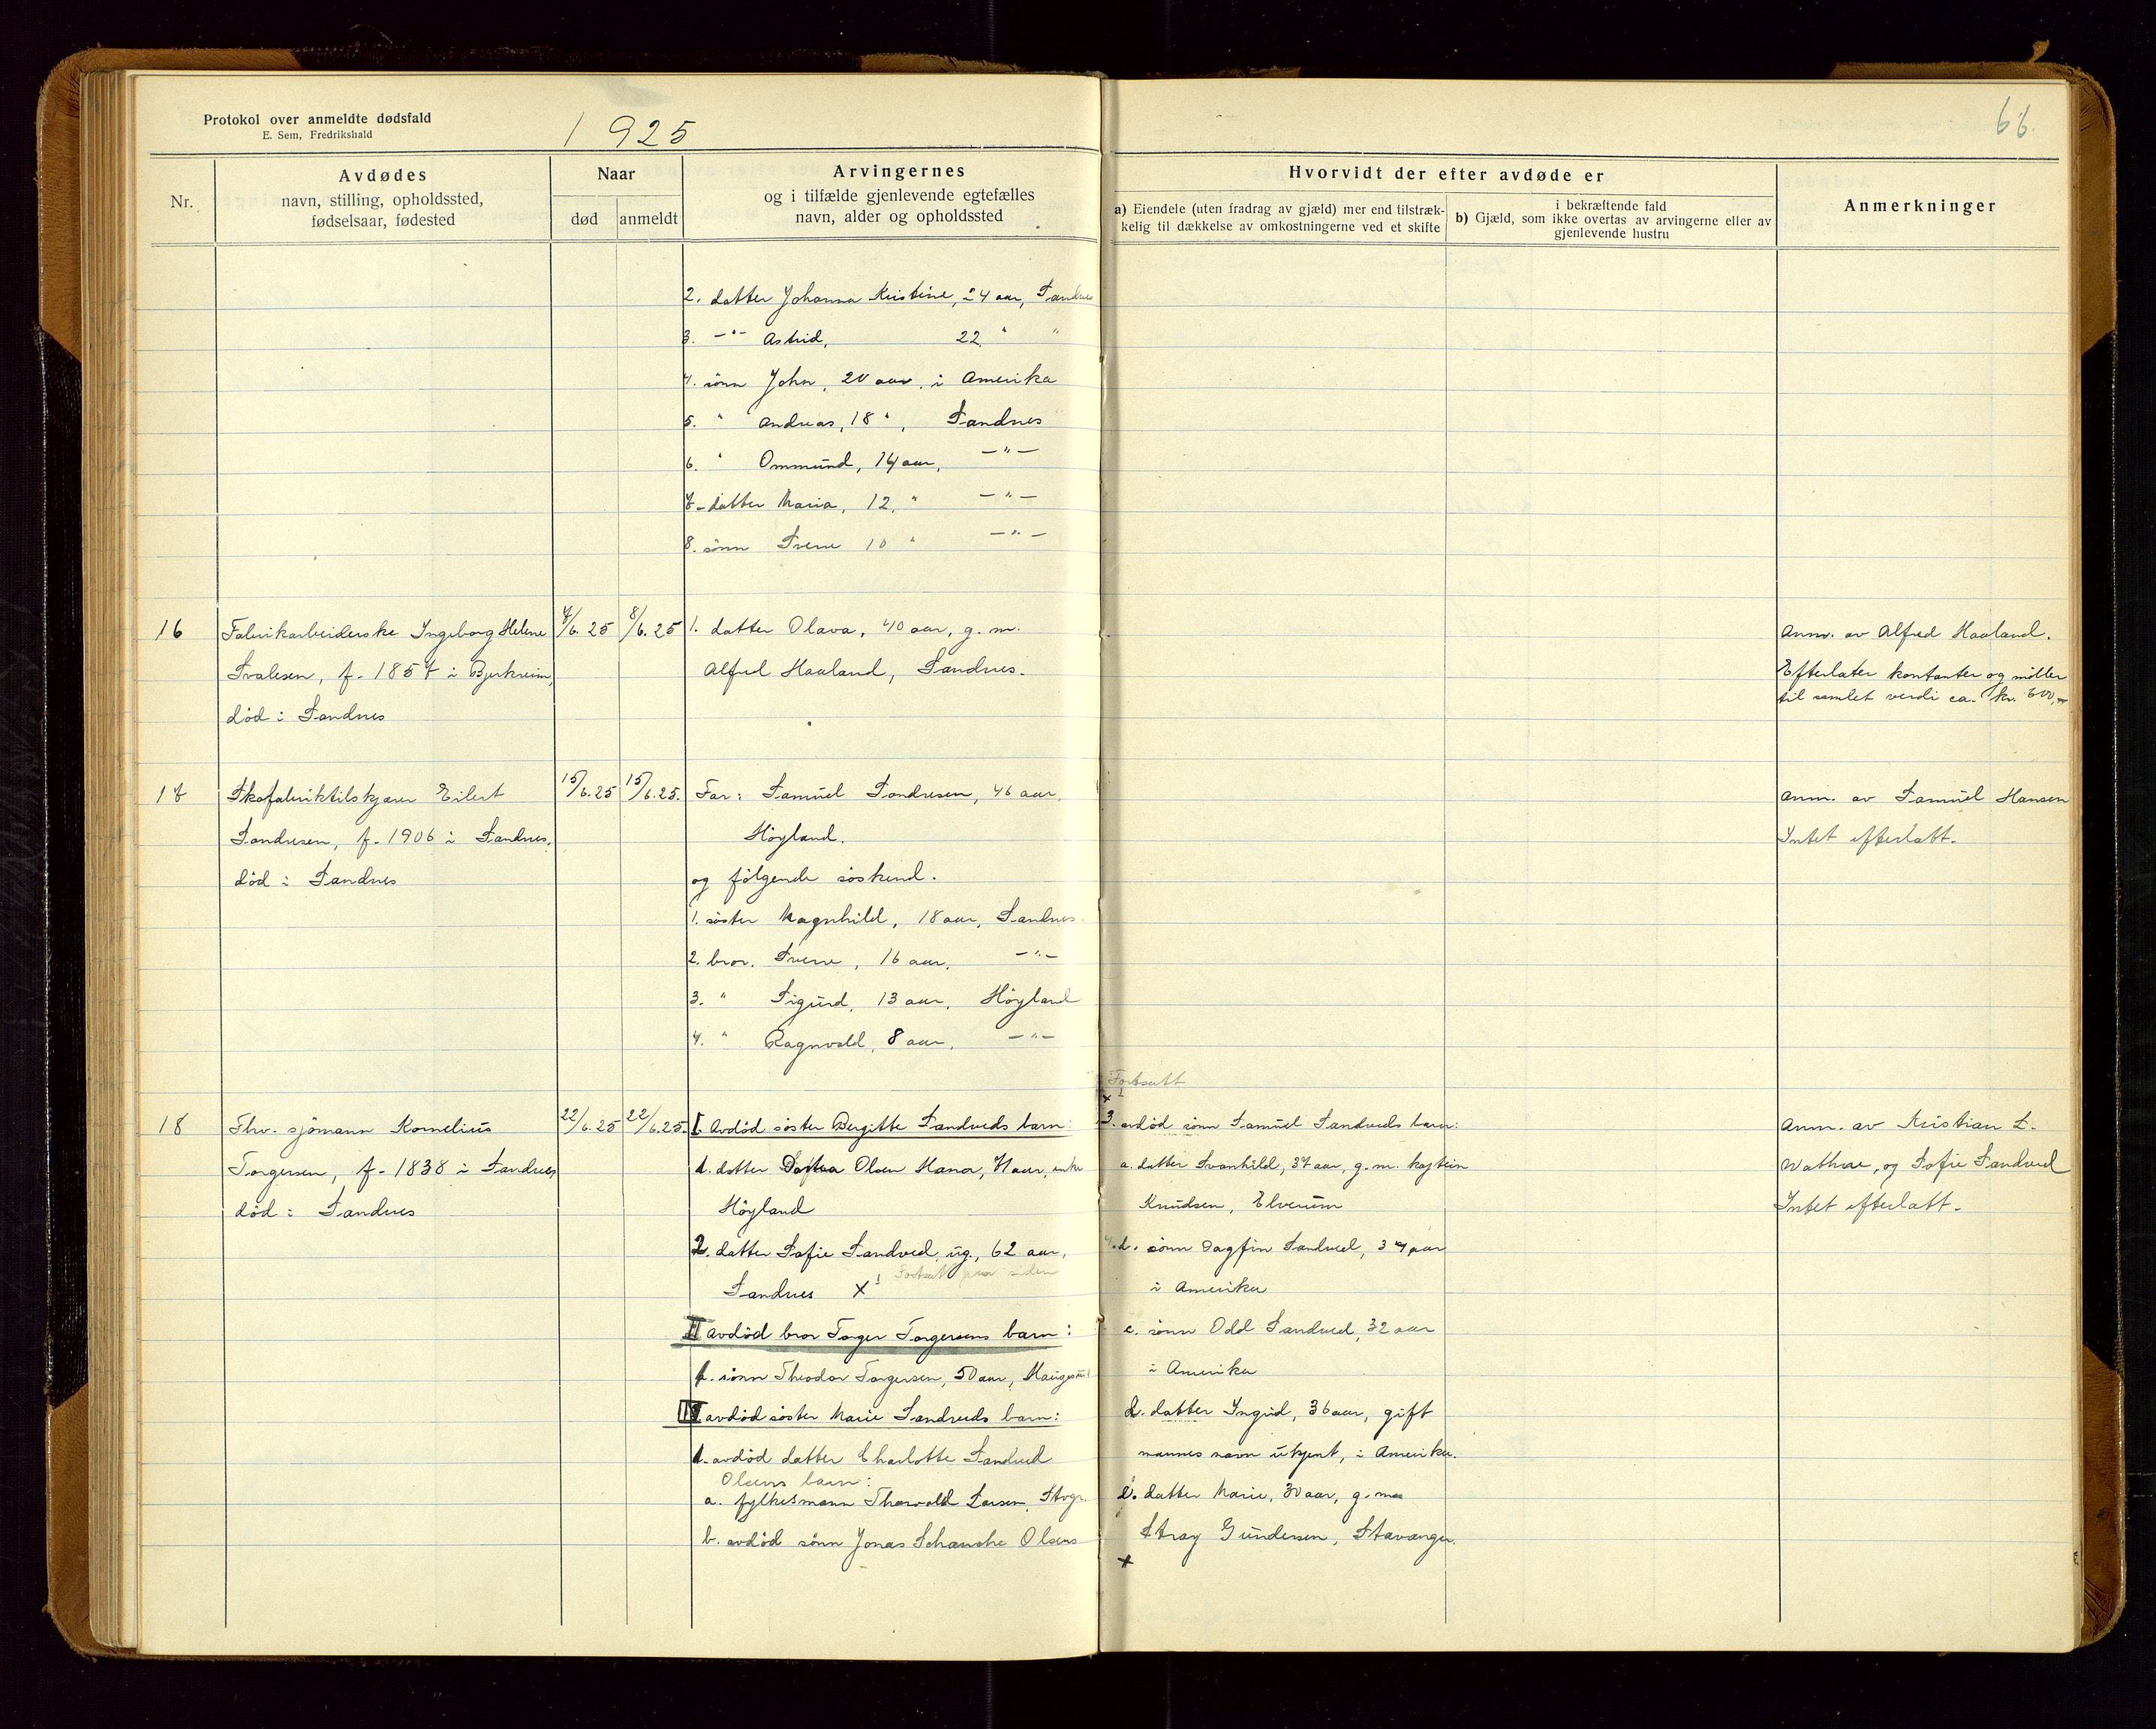 Protokol over anmeldte dødsfald
E. Sem, Fredrikshald
1925
66.
Nr.
Avdødes
navn, stilling, opholdssted,
fødselsaar, fødested
Naar
død
anmeldt
Arvingernes
og i tilfælde gjenlevende egtefælles
navn, alder og opholdssted
Hvorvidt der efter avdøde er
a) Eiendele (uten fradrag av gjæld) mer end tilstræk-
kelig til dækkelse av omkostningerne ved et skifte
i bekræftende fald
b) Gjæld, som ikke overtas av arvingerne eller av
gjenlevende hustru
Anmerkninger
2. datter Johanna Kristine, 24 aar, Sandnes
3. -"- Astrid, 22 " "
4. sønn John, 20 aar, i Amerika
5. " Andreas, 18 ", Sandnes
6. " Ommund, 14 aar, -"-
7- datter Maria, 12, " -"-
8. sønn Sverre 10 " -"-
16
Fabrikarbeiderske Ingeborg Helene
Svalesen, f. 1857 i Bjerkreim,
død i Sandnes
7/6. 25
8/6. 25
1. datter Olava, 40 aar, g. m.
Alfred Haaland, Sandnes.
Anm. av Alfred Haaland.
Efterlater kontanter og møbler
til samlet verdi ca. kr. 600,-
17
Skofabriktilskjærer Eilert
Sandresen, f. 1906 i Sandnes,
død i Sandnes
15/6. 25
15/6. 25.
Far: Samuel Sondresen, 46 aar,
Høyland.
og følgende søskend.
1. søster Magnhild, 18 aar, Sandnes
2. bror. Sverre, 16 aar, -"-
3. " Sigurd, 13 aar, Høyland
4. " Ragnvald, 8 aar, -"-
Anm. av Samuel Hansen
Intet efterlatt.
18
Fhv. sjømann Kornelius
Torgersen, f. 1838 i Sandnes,
død i Sandnes
22/6. 25
22/6. 25.
I. Avdød søster Bergitte Sandveds barn:
1. datter Dortea Olsen Hana, 71 aar, enke
Høyland
2. datter Sofie Sandved, ug., 62 aar,
Sandnes x¹ Fortsatt paa siden
II avdød bror Torger Torgersens barn:
1. sønn Theodor Torgersen, 50 aar, Haugesund
III avdød søster Marie Sandveds barn:
1. avdød datter Charlotte Sandved
Olsens barn:
a. fylkesmann Thorvald Larsen, Stvgr.
b. avdød sønn Jonas Schanche Olsens
Fortsatt
x 1
3. avdød sønn Samuel Sandveds barn:
a. datter Svanhild, 37 aar, g. m. kaptein
Knudsen, Elverum
b. sønn Dagfin Sandved, 34 aar
i Amerika
c. sønn Odd Sandved, 32 aar
i Amerika
d. datter Ingrid, 36 aar, gift
mannes navn ukjent, i Amerika.
e. datter Marie, 30 aar, g. m.
Stray Gundersen, Stavanger.
x
Anm. av Kristian L.
Wathne, og Sofie Sandved
Intet efterlatt.